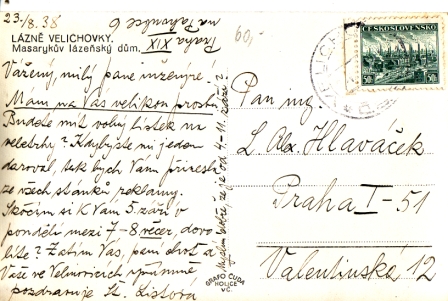 23./8. 38
LÁZNĚ VELICHOVKY.
Masarykův lázeňský dům.
Praha XIX
na Zátorce 6
60,-
Vážený, milý pane inženýre!
Mám na Vás velikou prosbu
Budete mít volný lístek na
veletrhy? Kdybyste mi jeden
daroval, tak bych Vám přinesla
ze všech stánků reklamy.
Skočím si k Vám 5. září v
pondělí mezi 7-8 večer, dovo
líte? Zatím Vás, paní choť a
Vaše ve Velvarcích upřímně
pozdravuje
že je od 4-11. září?
ČESKOSLOVENSKO
50h
50h
Pan ing.
L. Alex. Hlaváček
Praha I-51
Valentinská 12
GRAFO ČUDA
HOLICE
V Č.